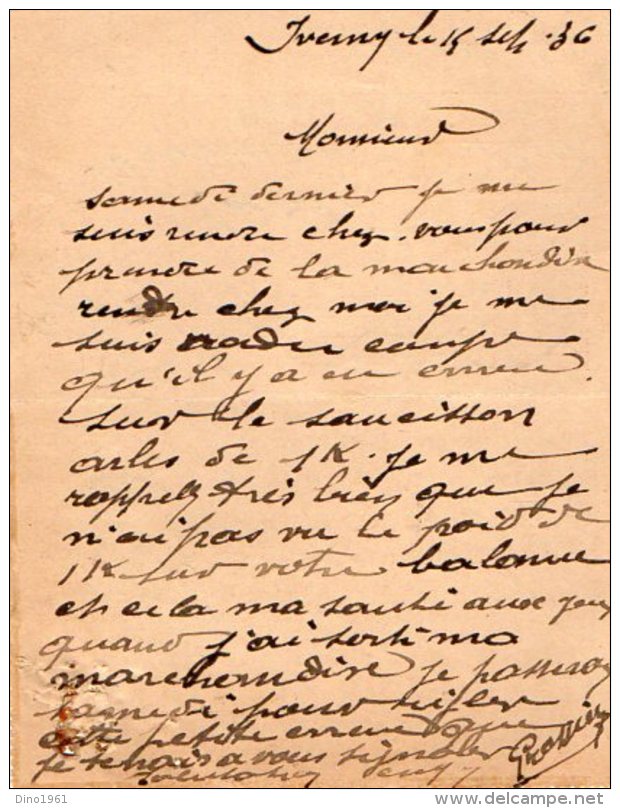 le 15 sept. 36
Monsieur
samedi dernier je me
suis rendre chez vous pour
prendre de la marchandise
rendu chez moi je me
suis rendu compte
qu'il y a eu erreur
sur le saucisson
arles de 1K. Je me
rappelle très bien que je
n'ai pas vu le poid de
1K sur votre balance
et cela ma sauté aux yeux
quand j'ai sorti ma
marchandise je passerai
samedi pour régler
cette petite erreur que
je tenais a vous signaler
Dino1961
delcampe.net